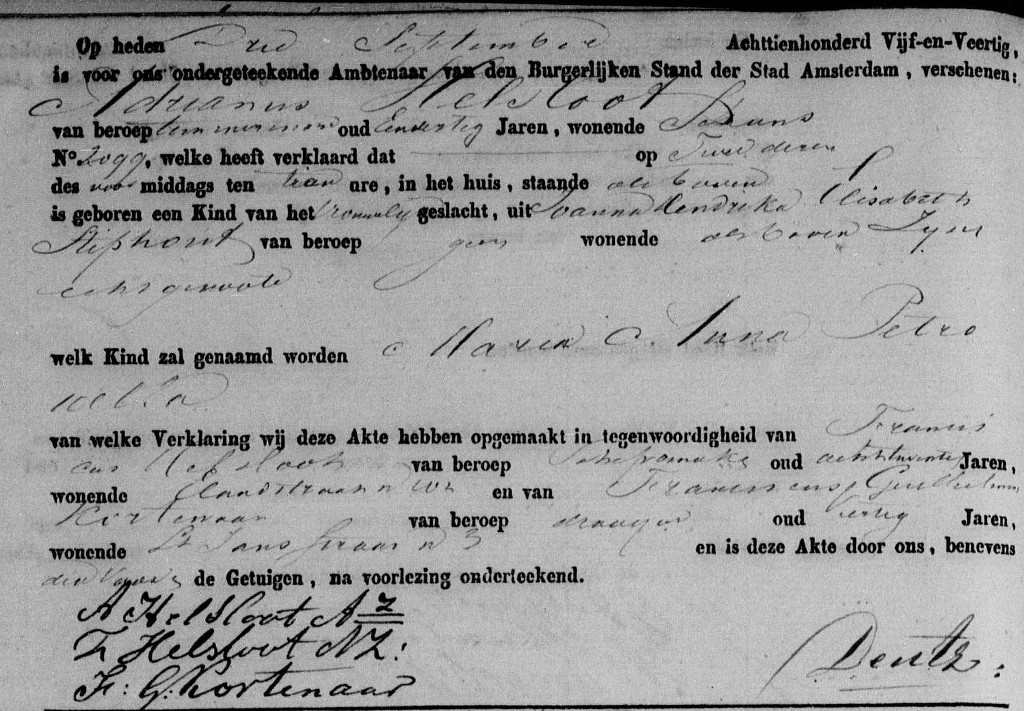 Op heden Drie September Achttienhonderd Vijf-en-Veertig,
is voor ons ondergeteekende Ambtenaar van den Burgerlijken Stand der Stad Amsterdam, verschenen:
Adrianus Helsloot
van beroep timmerman oud Eendertig Jaren, wonende
No. 2099, welke heeft verklaard dat op Twee dezer
des voor middags ten tien ure, in het huis, staande als boven
is geboren een Kind van het vrouwelijk geslacht, uit Joanna Hendrika Elisabeth
Stiphout van beroep geen wonende als boven Zijne
echtgenoote
welk Kind zal genaamd worden Maria Anna Petro
nella
van welke Verklaring wij deze Akte hebben opgemaakt in tegenwoordigheid van Francis
cus Helsloot van beroep oud achtentwintig Jaren,
wonende Elandstraat n en van Franciscus Guilhelmus
Kortenaar van beroep oud veertig Jaren,
wonende St Jansstraat n 3 en is deze Akte door ons, benevens
den Vader & de Getuigen, na voorlezing onderteekend.
A Helsloot AZ
F Helsloot NZ:
F: G: Kortenaar
Deutz: